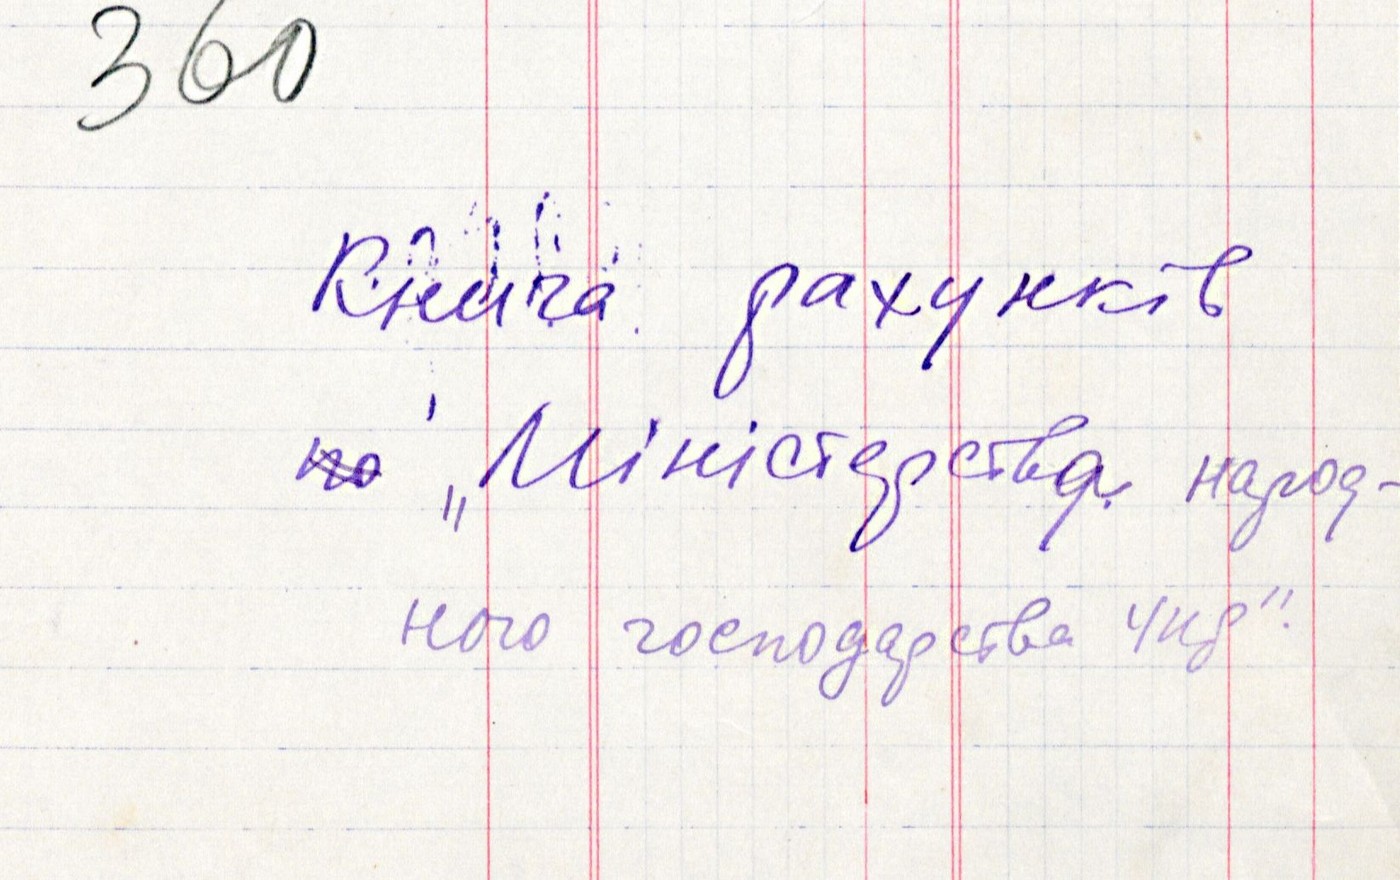 360
Книга рахунків
по „Міністерства народ-
ного господарства УНР".